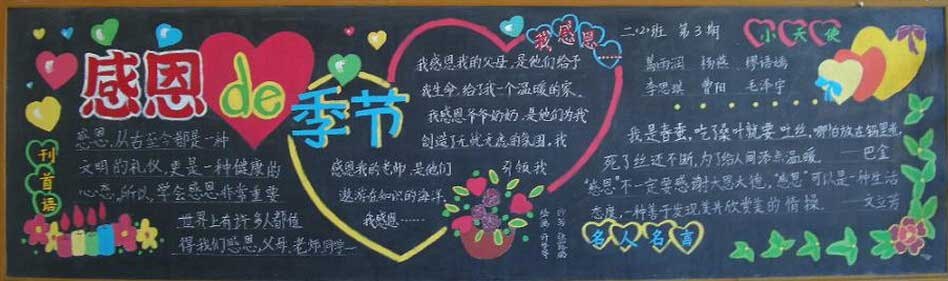 感恩de季节
刊首语
感恩,从古至今都是一种
文明的礼仪,更是一种健康的
心态,所以,学会感恩非常重要
世界上有许多人都值
得我们感恩,父母、老师、同学…
我感恩……
我感恩我的父母,是他们给予
我生命,给了我一个温暖的家。
我感恩爷爷奶奶,是他们为我
创造了无忧无虑的氛围,我
感恩我的老师,是他们 引领我
遨游在知识的海洋,
我感恩……
二(2)班 第3期
小天使
杨燕
李思琪 曹阳 毛泽宁
我是春蚕,吃了桑叶就要吐丝,哪怕放在锅里煮,
死了丝还不断,为了给人间添点温暖。——巴金
“感恩”不一定要感谢大恩大德,“感恩”可以是一种生活
态度,一种善于发现美并欣赏美的情操。——文立芳
名人名言